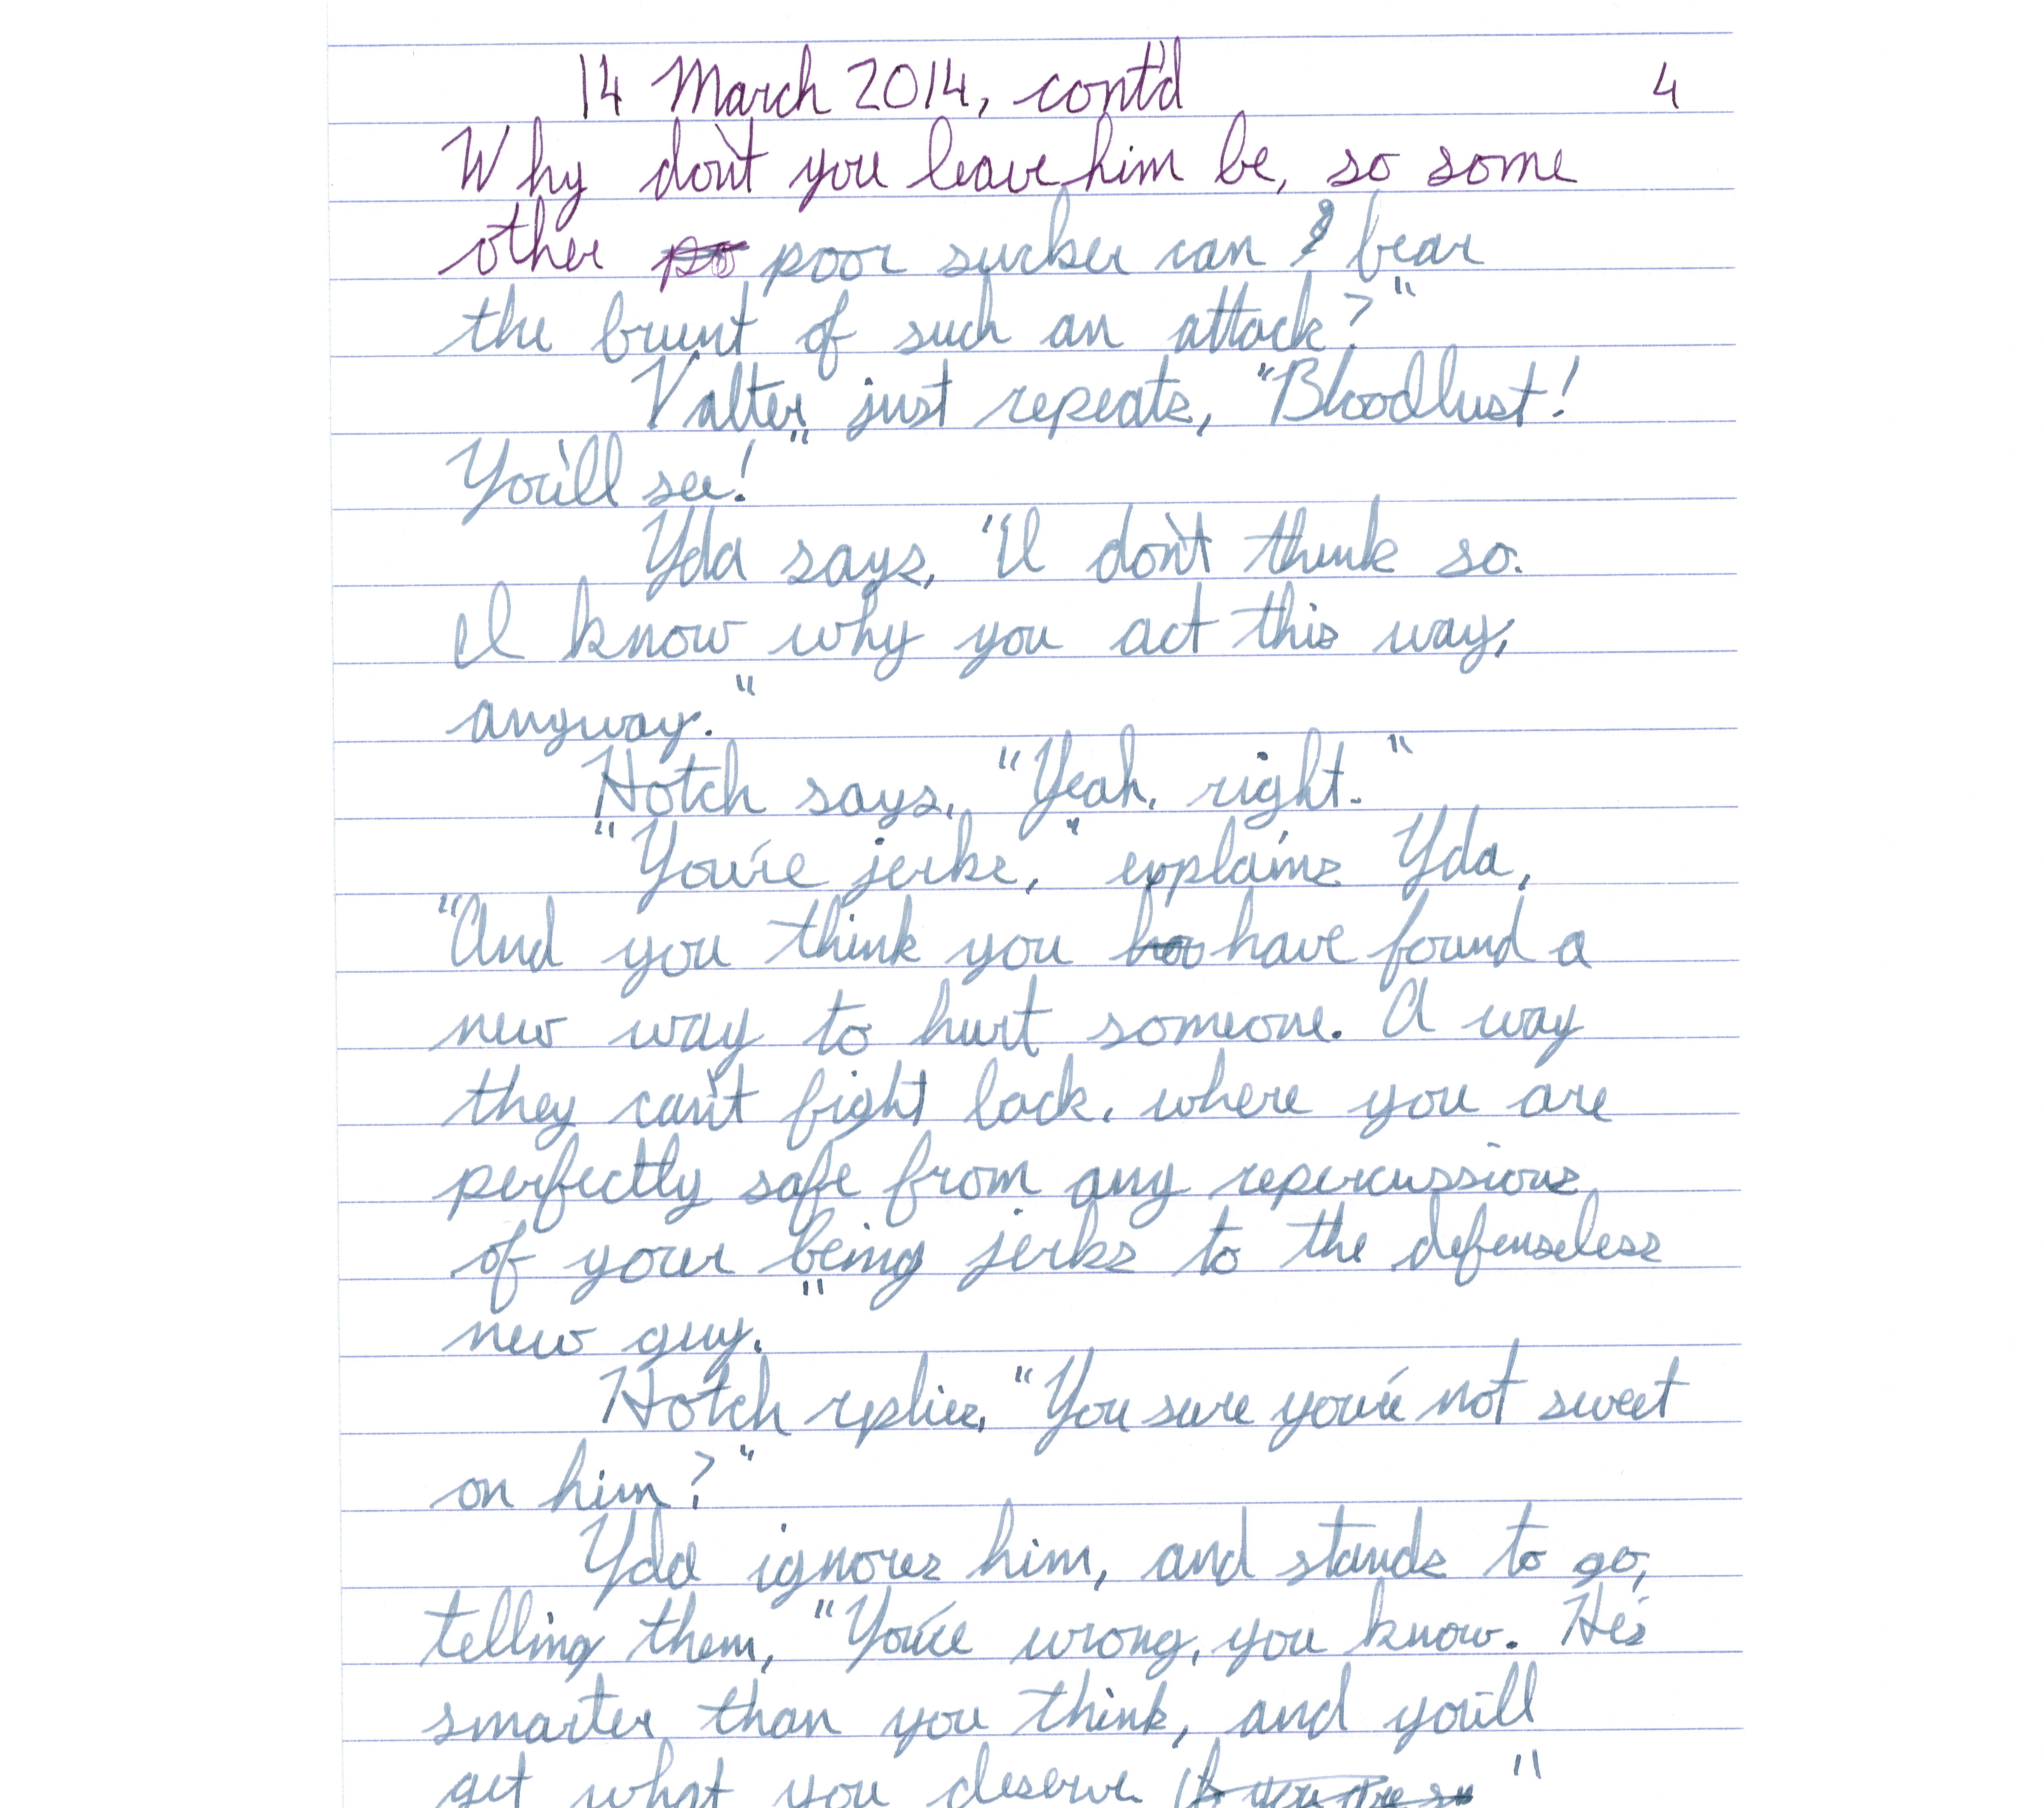 14 March 2014, cont'd 4
Why don't you leave him be, so some
other po poor sucker can & bear
the brunt of such an attack?"
Valter just repeats, "Bloodlust!
You'll see!"
Yda says, "I don't think so.
I know why you act this way,
anyway."
Hotch says, "Yeah, right."
"You're jerks," explains Yda,
"And you think you ha have found a
new way to hurt someone. A way
they can't fight back, where you are
perfectly safe from any repercussions
of your being jerks to the defenseless
new guy."
Hotch replies, "You sure you're not sweet
on him?"
Yda ignores him, and stands to go,
telling them, "You're wrong, you know. He's
smarter than you think, and you'll
get what you deserve. "